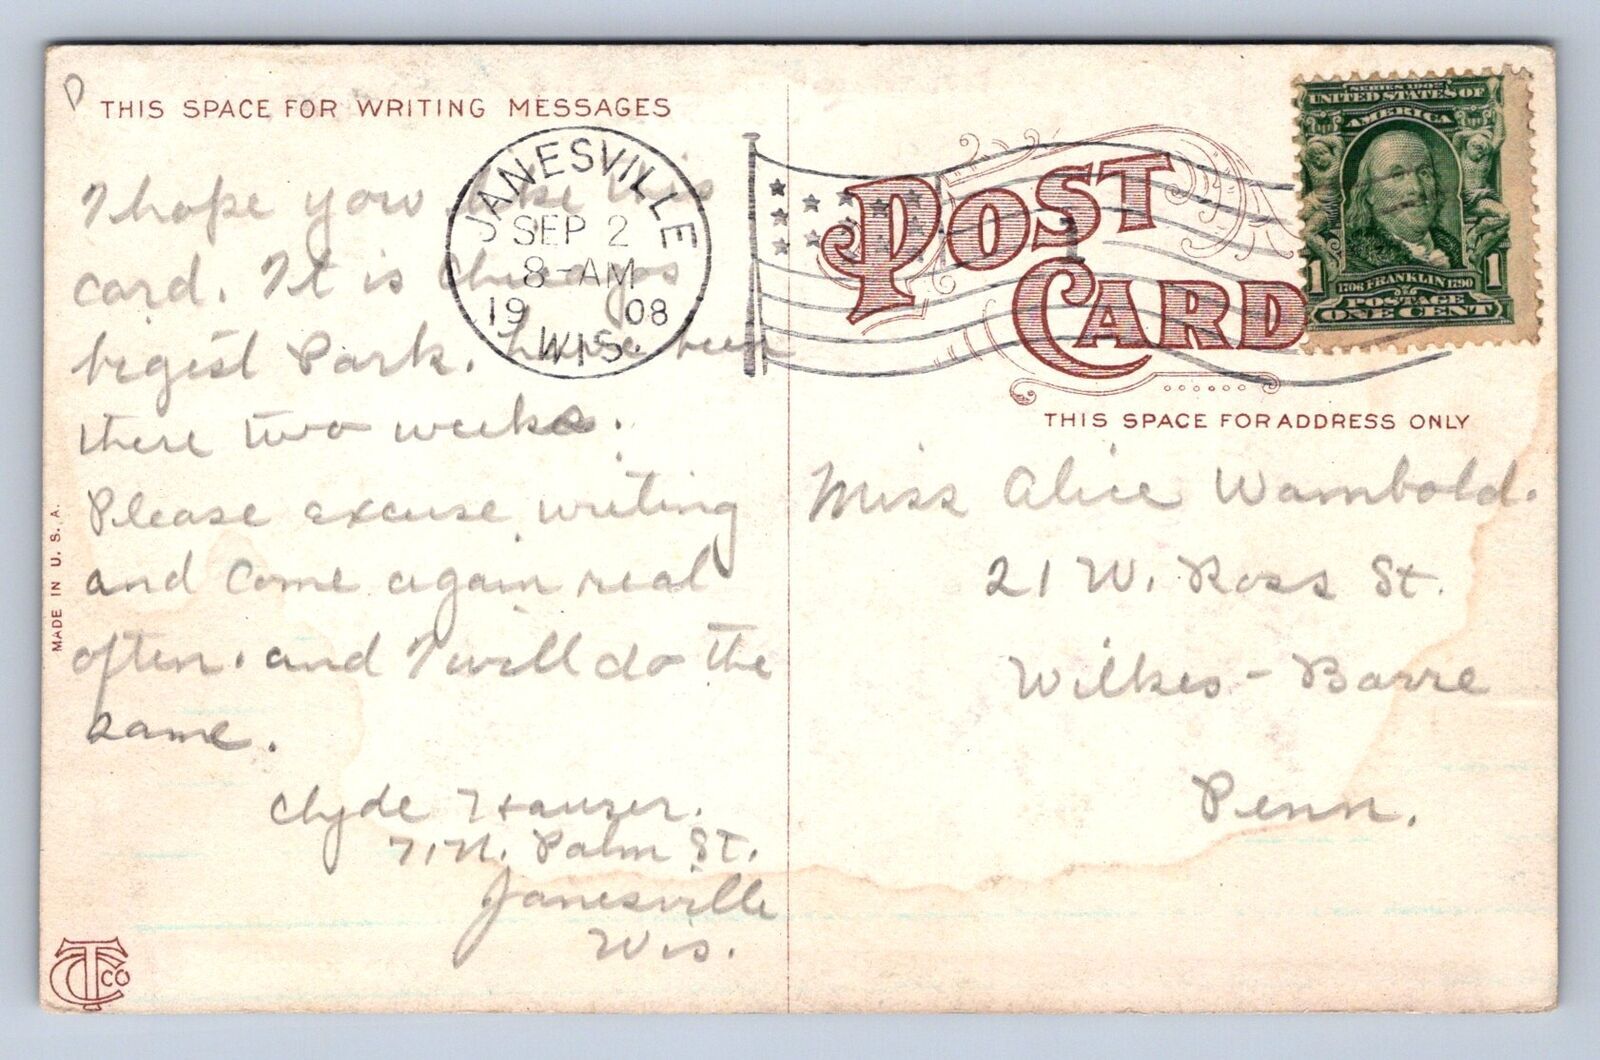 THIS SPACE FOR WRITING MESSAGES
JANESVILLE
SEP 2
8-AM
1908
WIS.
1
POST
CARD
SERIES 1902
UNITED STATES OF
AMERICA
1 1706 FRANKLIN 1790 1
POSTAGE
ONE CENT
THIS SPACE FOR ADDRESS ONLY
I hope you like this
card. It is Chicagos
bigest Park. have been
there two weeks.
Please excuse writing
and come again real
often. and I will do the
same.
Clyde Hauser.
71 N. Palm St.
Janesville
Wis.
Miss Alice Wambold.
21 W. Ross St.
Wilkes-Barre
Penn.
MADE IN U.S.A.
CTCO